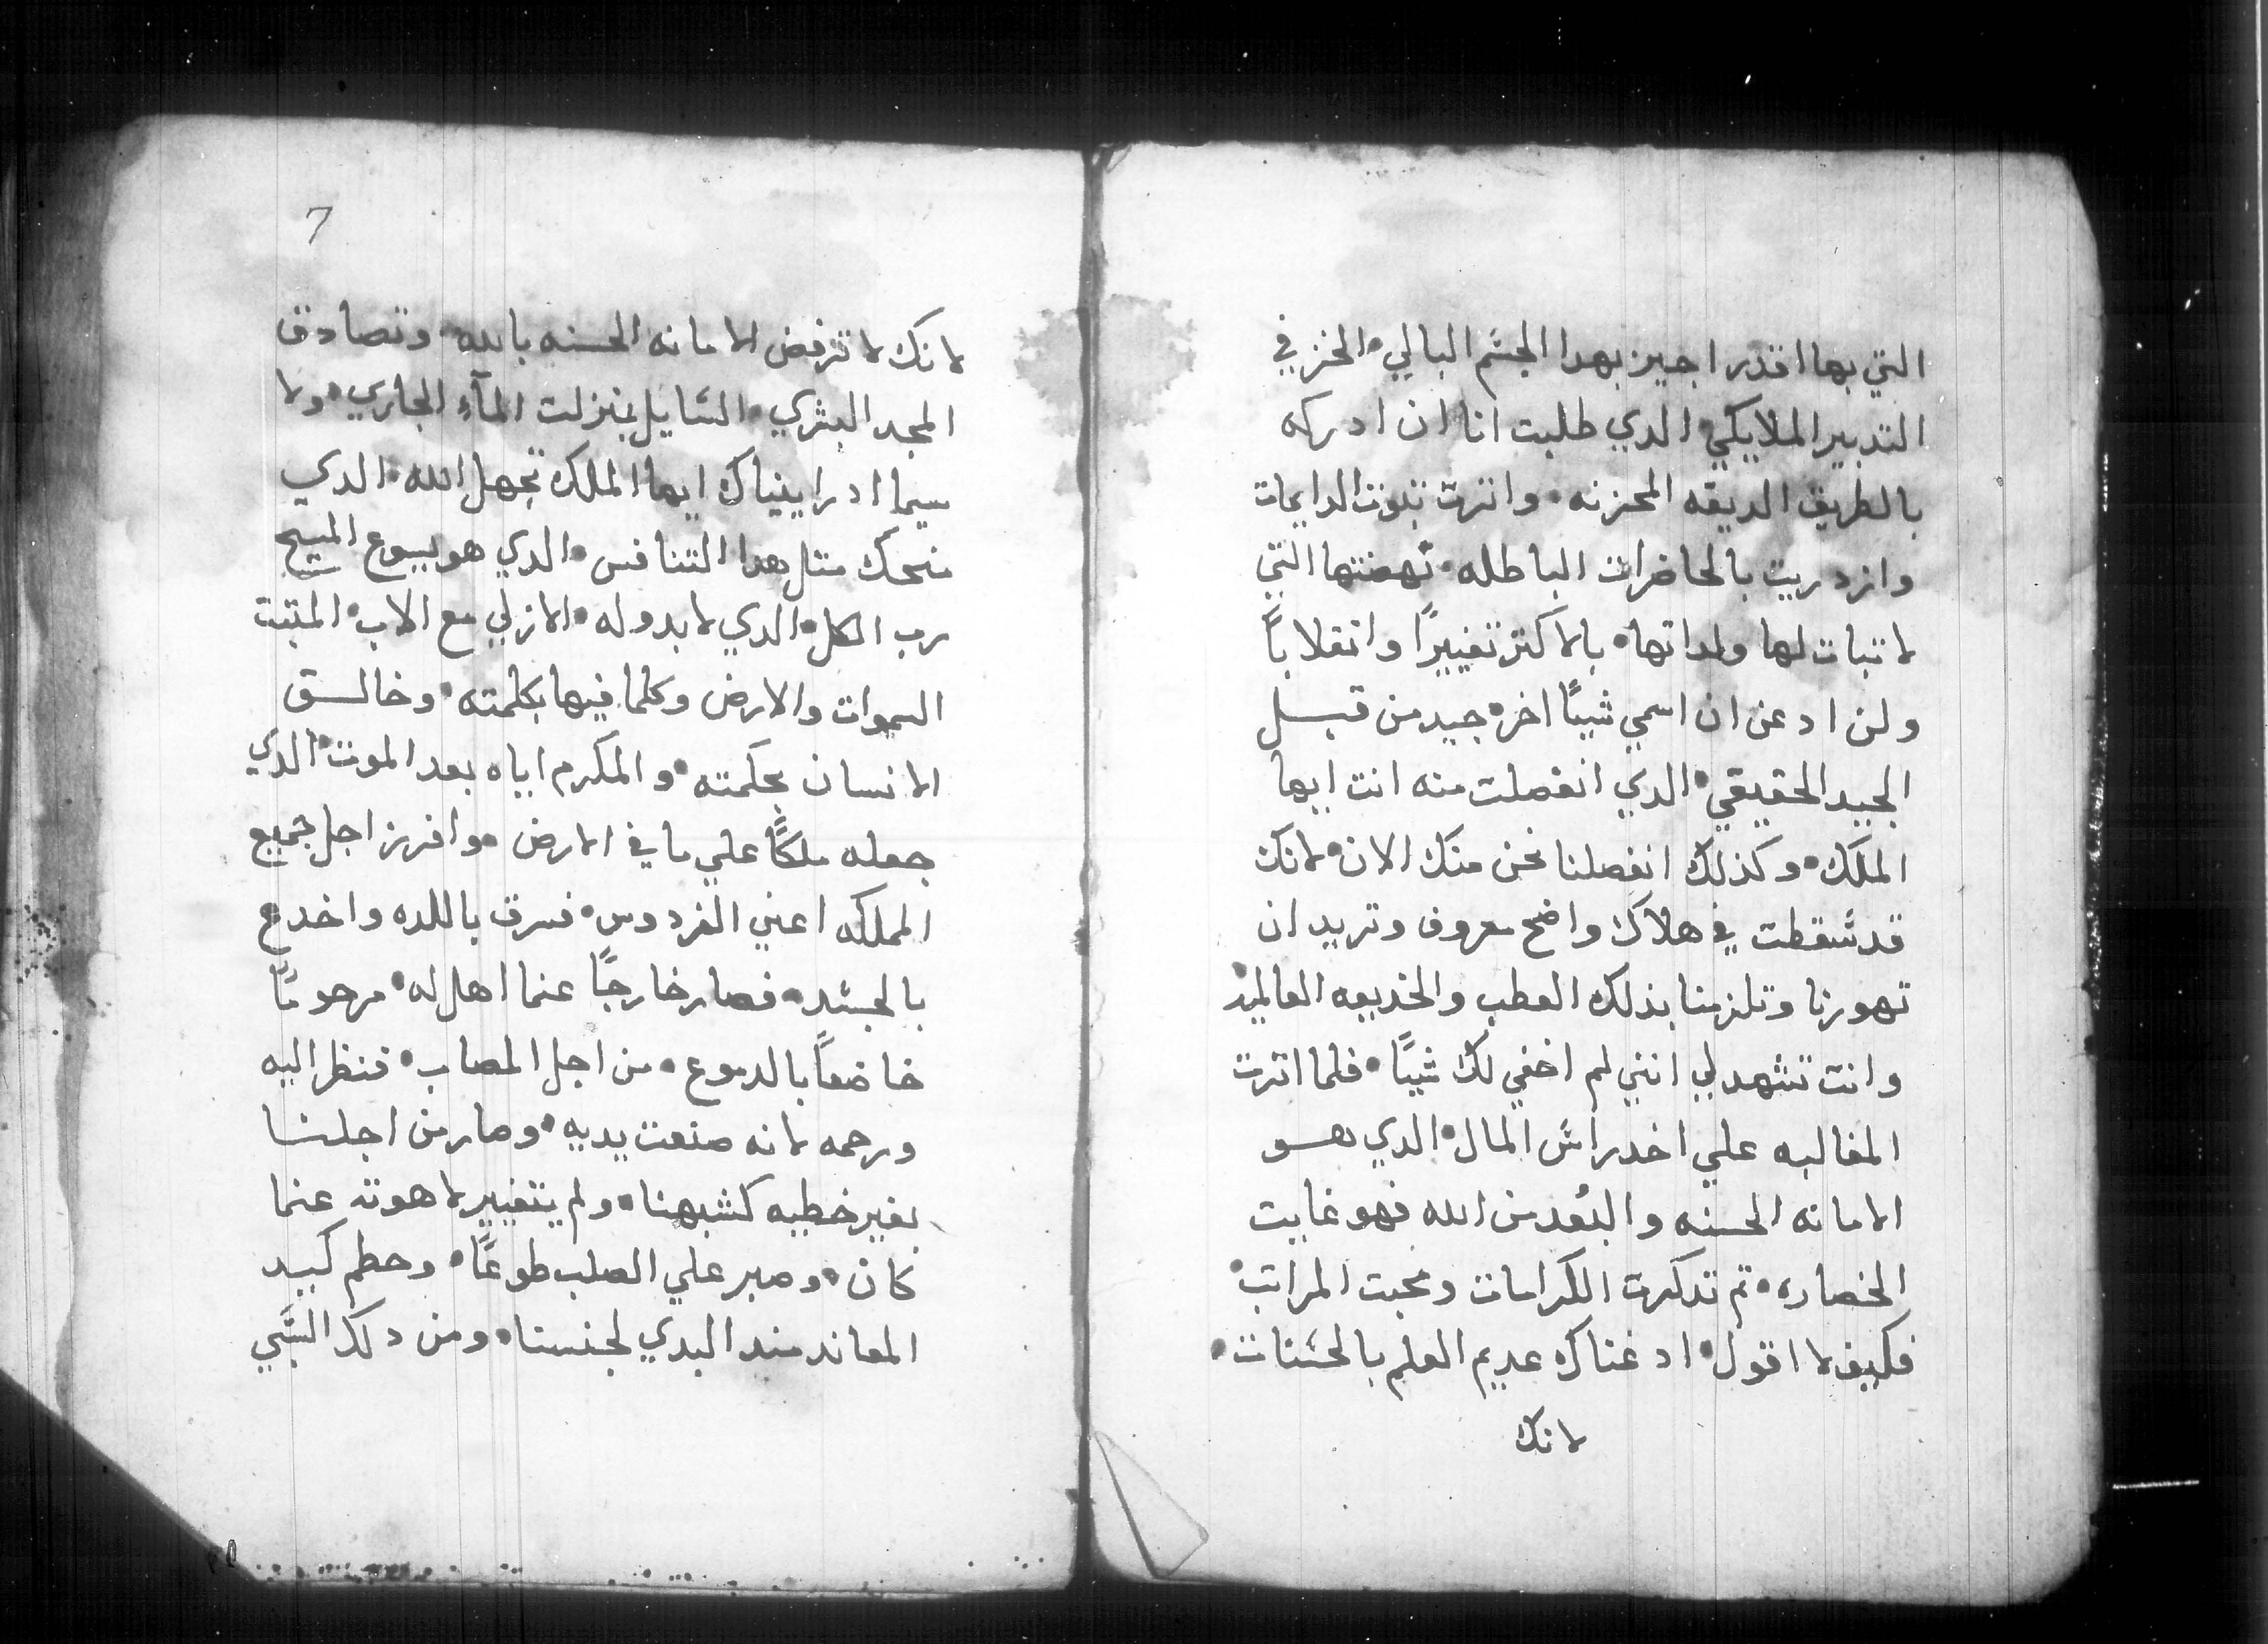 التي بها اقدر اجيز بهدا الجسم البالي • الخزفي
التدبير الملايكي • الدي طلبت انا ان ادركه
بالطريق الديقه المحزنه • واثرت تلوت الدايمات
وازدريت بالحاضرات الباطله • تهضنها التي
لا تبات لها ولداتها • بالاكتر تغييرًا وانقلاباً
ولن ادعن ان اسمي شيئًا اخر • جيد من قبل
الجيد الحقيقي • الدي انفصلت منه انت ايها
الملك • وكذلك انفصلنا نحن منك الان • لانك
قد سقطت في هلاك واضح معروف وتريد ان
تهورنا وتلزمنا بذلك العطب والخديعه العالميه
وانت تشهد لي انني لم اخفي لك شيًا • فلما اترت
المغالبه علي اخد راس المال • الدي هو
الامانه الحسنه والبُعد من الله فهو غايت
الخصاره • تم تدكرت الكرامات ومحبت المراتب •
فكيف لا اقول • اد غناك عديم العلم بالحسنات •
لانك
7
لانك لا ترفض الامانه الحسنه بالله • وتصادق
المجد البشري • السايل بمنزلت المآء الجاري • ولا
سيما اد راييناك ايها الملك تجهل الله • الدي
منحك متل هدا التنافس • الدي هو يسوع المسيح
رب الكل • الدي لا بدو له • الازلي مع الاب • المتبت
السموات والارض وكلما فيها بكلمته • وخالق
الانسان بحكمته • والمكرم اياه بعد الموت • الدي
جعله ملكًا علي ما في الارض • وافرز اجل جميع
المملكه اعني الفردوس • فسرق باللده واخدع
بالجسد • فصار خارجًا عنما اهل له • مرحومًا
خاضعاً بالدموع • من اجل المصاب • فنظر اليه
ورحمه لانه صنعت يديه • وصار من اجلنا
بغير خطيه كشبهنا • ولم يتغيير لاهوته عنما
كان • وصبر علي الصلب طوعًا • وحطم كيد
المعاند مند البدي لجنسنا • ومن دلك السبي